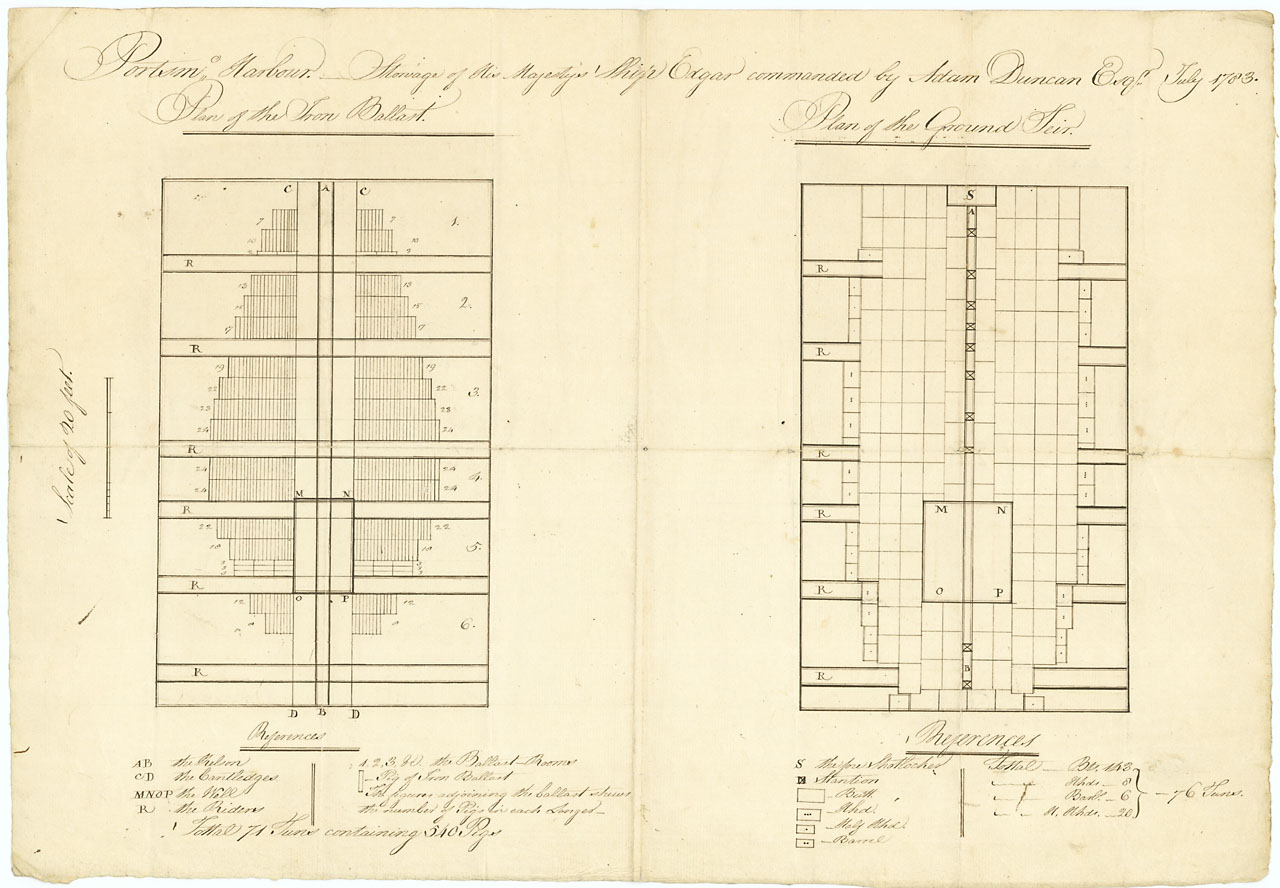 Portsmo Harbour. Stowage of His Majestys Ship Edgar commanded by Adam Duncan Esqr. July 1783.
Plan of the Iron Ballast.
C A C
7 7 1.
10 10
2 2
R
13 13
15 15 2.
17 17
R
19 19
22 22 3.
23 23
24 24
R
24 24 4.
24 24
M N
R
22 22
18 18 5.
R
O P
12 12
9 9 6.
R
D B D
Scale of 20 feet.
References
AB the Kelson
CD the Cantledges
MNOP the Well
R the Riders
1, 2, 3, &c. the Ballast Rooms
Pig of Iron Ballast
The figures adjoining the ballast shews
the number of Pigs in each Longer
Tottal 71 Tuns containing 540 Pigs
Plan of the Ground Teir.
S
A
R
R
R
R
M N
O P
R
B
R
References
S the fore Shotlocker
Stantion
Butt
Hhd.
Half Hhd.
Barrel
Tottal Bts. 143
Hhds. 8
Barls. 6
H. Hhds. 20
76 Tuns.